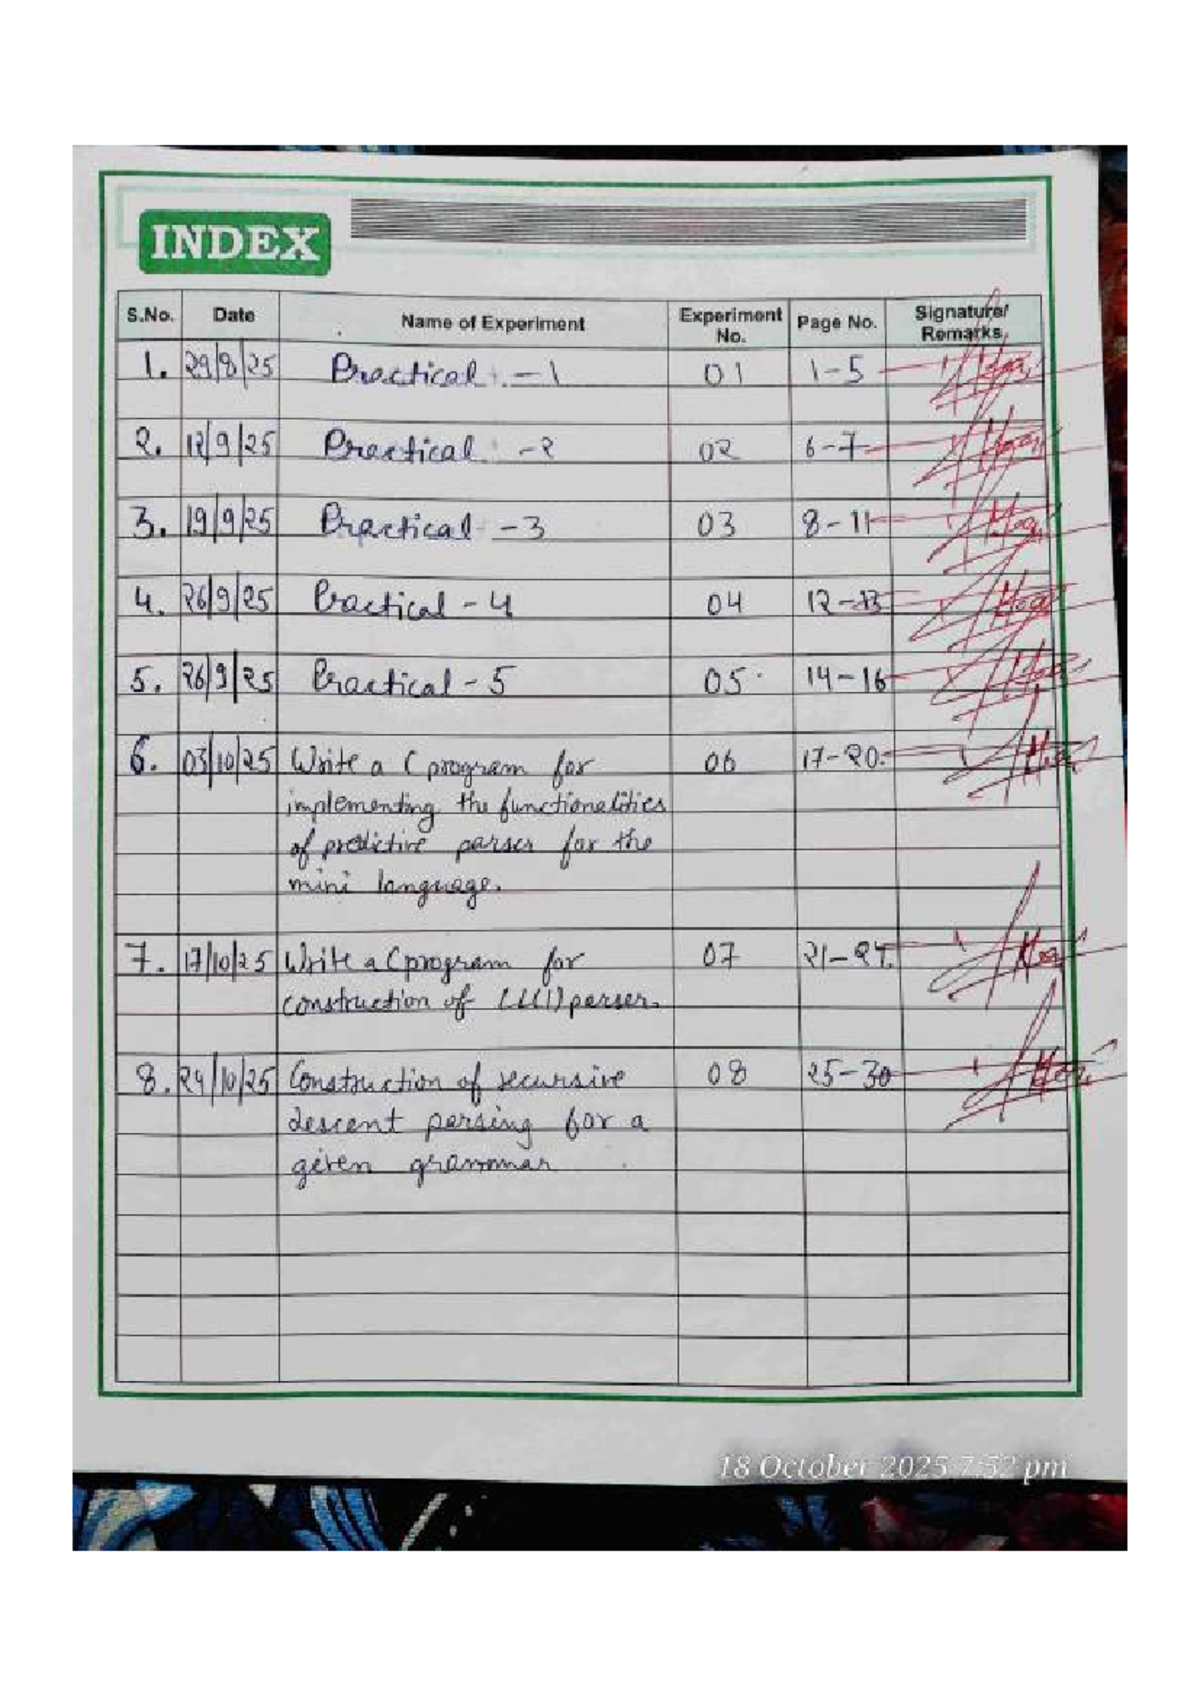 INDEX
S.No. Date Name of Experiment Experiment No. Page No. Signature/ Remarks
1. 29/8/25 Practical - 1 01 1-5
2. 12/9/25 Practical - 2 02 6-7
3. 19/9/25 Practical - 3 03 8-11
4. 26/9/25 Practical - 4 04 12-13
5. 26/9/25 Practical - 5 05 14-16
6. 03/10/25 Write a C program for 06 17-20
implementing the functionalities
of predictive parser for the
mini language.
7. 17/10/25 Write a C program for 07 21-24
construction of LL(1) parser.
8. 24/10/25 Construction of recursive 08 25-30
descent parsing for a
given grammar
18 October 2025 7:52 pm